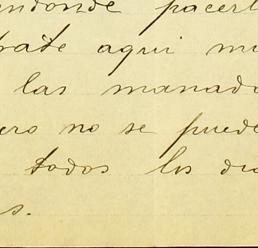 endonde pacerl
brate aqui mu
las manad
ero no se puede
todos los dia
s.